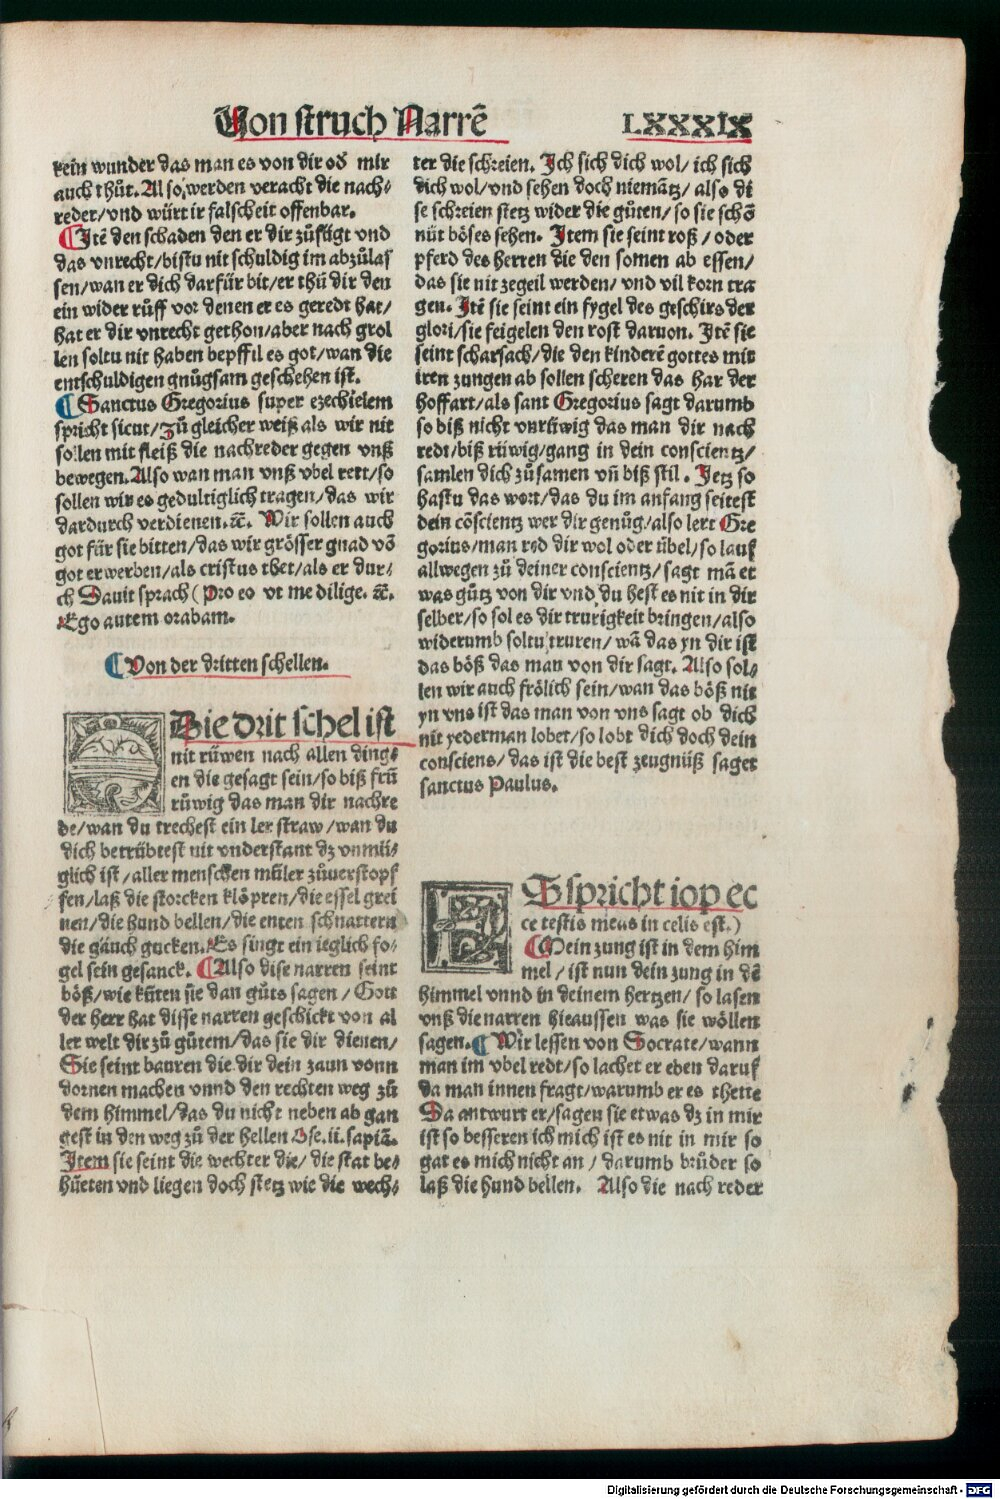 Von struch Narrē LXXXIX
kein wunder das man es von dir od̄ mir
auch thůt. Also werden veracht die nach⸗
reder/vnd würt ir falscheit offenbar.
¶ Itē den schaden den er dir zůfügt vnd
das vnrecht/bistu nit schuldig im abzůlas
sen/wan er dich darfür bit/er thů dir den
ein wider růff vor denen er es geredt hat/
hat er dir vnrecht gethon/aber nach grol
len soltu nit haben bepffil es got/wan die
entschuldigen gnůgsam geschehen ist.
¶ Sanctus Gregorius super ezechielem
spricht sicut/zů gleicher weiß als wir nit
sollen mit fleiß die nachreder gegen vnß
bewegen. Also wan man vnß vbel rett/so
sollen wir es gedultiglich tragen/das wir
dardurch verdienen. ꝛc̄. Wir sollen auch
got für sie bitten/das wir grösser gnad vō
got erwerben/als cristus thet/als er dur⸗
ch Dauit sprach (Pro eo vt me dilige. ꝛc̄.
Ego autem orabam.
¶ Von der dritten schellen.
Die drit schel ist
nit rüwen nach allen ding⸗
en die gesagt sein/so biß frü
rüwig das man dir nachre
de/wan du trechest ein ler straw/wan du
dich betrübtest nit vnderstant dz vnmü⸗
glich ist/aller menschen müler zůverstopf
fen/laß die storcken klöpren/die essel grei
nen/die hund bellen/die enten schnattern
die gäuch gucken. Es singt ein ieglich fo⸗
gel sein gesanck. ¶ Also dise narren seint
böß/wie kūten sie dan gůts sagen/Gott
der herr hat disse narren geschickt von al
ler welt dir zů gůtem/das sie dir dienen/
Sie seint bauren die dir dein zaun vonn
dornen machen vnnd den rechten weg zů
dem himmel/das du nicht neben ab gan
gest in den weg zů der hellen Ose. ii. sapiā.
Item sie seint die wechter die/die stat be⸗
hüeten vnd liegen doch stetz wie die wech⸗
ter die schreien. Ich sich dich wol/ich sich
dich wol/vnd sehen doch niemātz/also di
se schreien stetz wider die gůten/so sie schō
nüt böses sehen. Item sie seint roß/oder
pferd des herren die den somen ab essen/
das sie nit zegeil werden/vnd vil korn tra
gen. Itē sie seint ein fygel des geschirs der
glori/sie feigelen den rost daruon. Itē sie
seint scharsach/die den kinderē gottes mit
iren zungen ab sollen scheren das har der
hoffart/als sant Gregorius sagt darumb
so biß nicht vnrüwig das man dir nach
redt/biß rüwig/gang in dein conscientz/
samlen dich zůsamen vn̄ biß stil. Jetz so
hastu das wort/das du im anfang seitest
dein cōscientz wer dir genůg/also lert Gre
gorius/man red dir wol oder übel/so lauf
allwegen zů deiner conscientz/sagt mā et
was gůtz von dir vnd du hest es nit in dir
selber/so sol es dir trurigkeit bringen/also
widerumb soltu truren/wā das yn dir ist
das böß das man von dir sagt. Also sol⸗
len wir auch frölich sein/wan das böß nit
yn vns ist das man von vns sagt ob dich
nit yederman lobet/so lobt dich doch dein
consciens/das ist die best zeugnüß saget
sanctus Paulus.
ES spricht iop ec
ce testis meus in celis est.)
¶ Mein zung ist in dem him
mel/ist nun dein zung in dē
himmel vnnd in deinem hertzen/so lasen
vnß die narren hieaussen was sie wöllen
sagen. ¶ Wir lessen von Socrate/wann
man im vbel redt/so lachet er eben daruf
da man innen fragt/warumb er es thette
Da antwurt er/sagen sie etwas dz in mir
ist so besseren ich mich ist es nit in mir so
gat es mich nicht an/darumb brüder so
laß die hund bellen. Also die nach reder
Digitalisierung gefördert durch die Deutsche Forschungsgemeinschaft - DFG